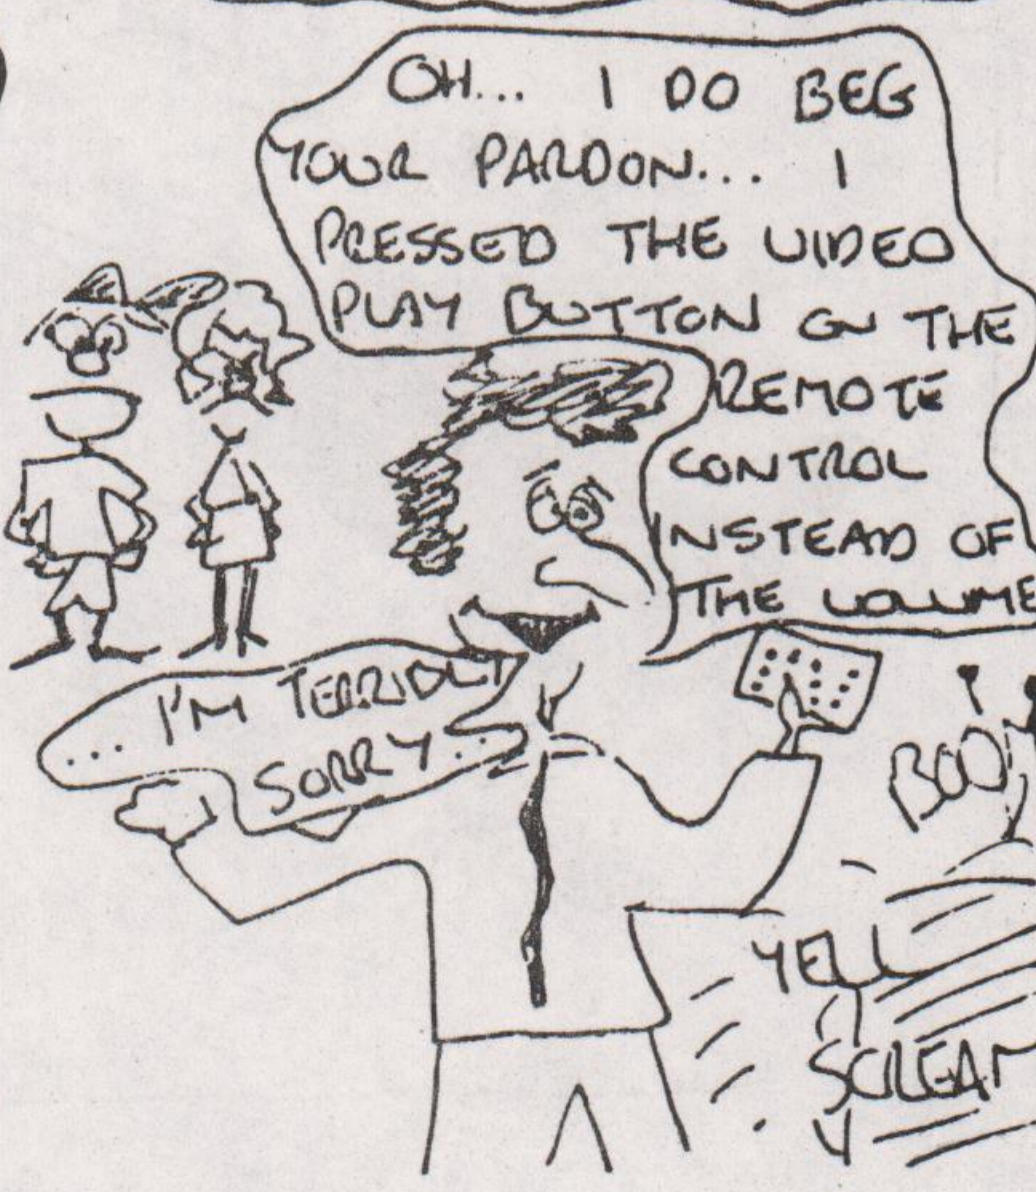 OH... I DO BEG
YOUR PARDON... I
PRESSED THE VIDEO
PLAY BUTTON ON THE
REMOTE
CONTROL
INSTEAD OF
THE VOLUME
... I'M TERRIBLY
SORRY...
BOO
YELL
SCREAM